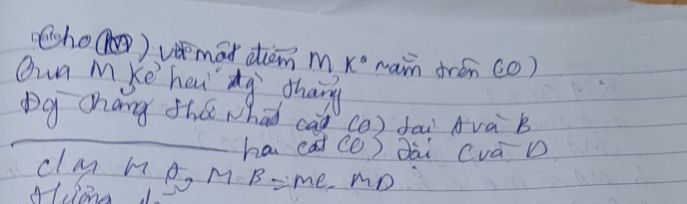 Cho (O) với một điểm M Kº nằm trên (O)
Qua M kẻ hai đg thẳng
Đg thẳng thứ nhất cắt (O) tại A và B
hai cắt (O) tại C và D
C/M M A. M B = MC. MD
Hướng